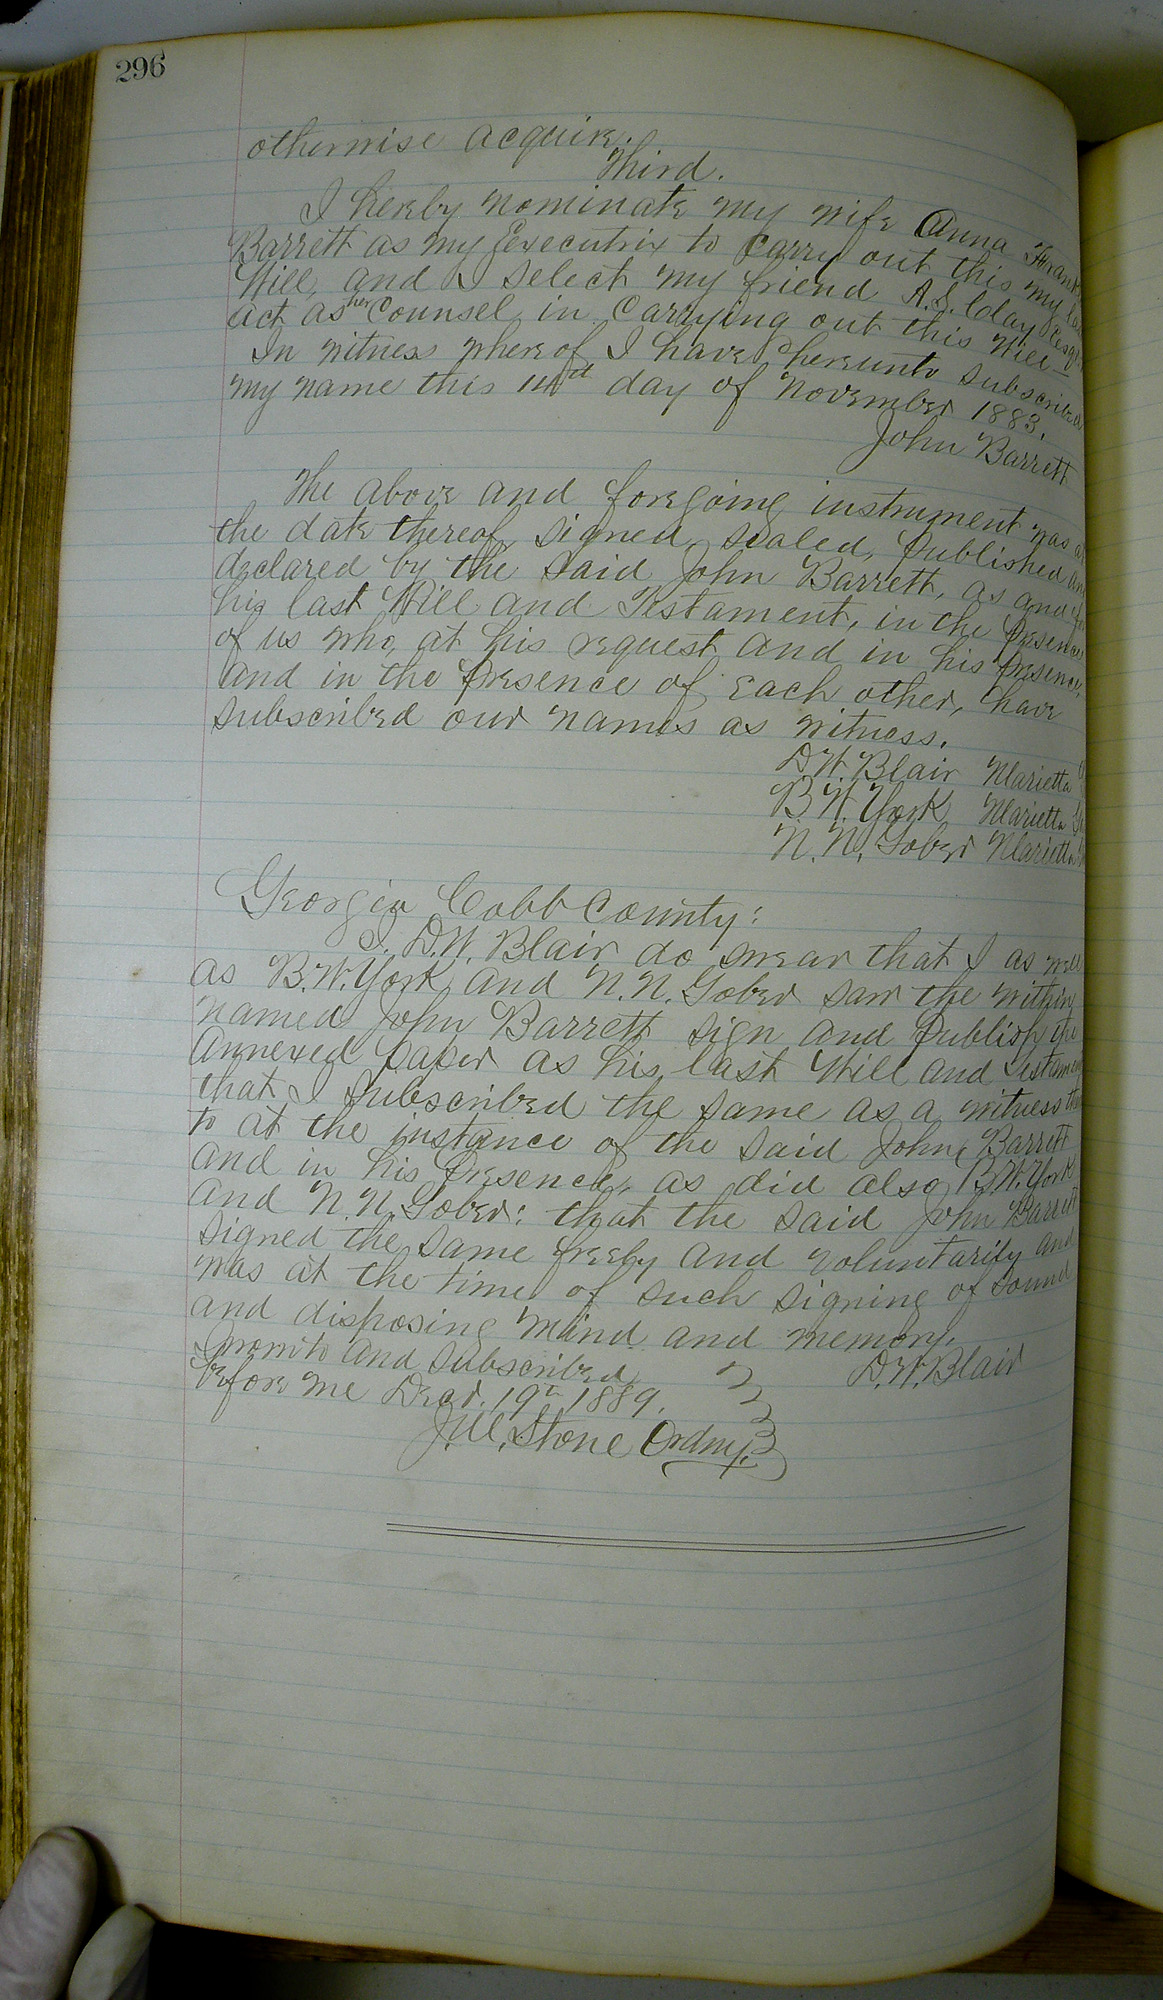 296
otherwise acquire.
Third.
I hereby nominate my wife Anna Frank
Barrett as my Executrix to carry out this my las
Will, and I select my friend A.S. Clay, Esqr.
act as her Counsel in carrying out this Will—
In witness whereof I have hereunto subscribed
my name this day of November 1883.
John Barrett
The above and foregoing instrument was at
the date thereof signed, sealed, published and
declared by the said John Barrett, as and for
his last Will and Testament, in the presence
of us who, at his request and in his presence,
and in the presence of each other, have
subscribed our names as witness.
D.W. Blair Marietta G
B.W. York Marietta Ga
N.N. Gober Marietta
Georgia Cobb County:
I, D.W. Blair do swear that I as well
as B.W. York and N.N. Gober saw the within
named John Barrett sign and publish the
annexed paper as his last Will and Testament
that I subscribed the same as a witness there
to at the instance of the said John Barrett
and in his presence, as did also B.W. York
and N.N. Gober: that the said John Barrett
signed the same freely and voluntarily and
was at the time of such signing of sound
and disposing mind and memory.
Sworn to and subscribed D.W. Blair
before me Decr. 19th 1889.
J.M. Stone Ordny.